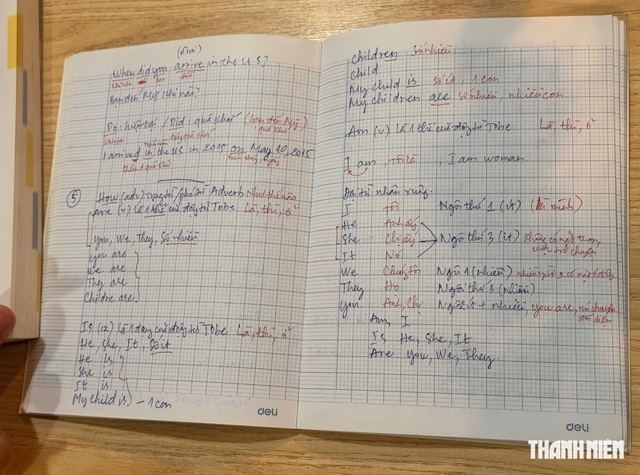 (ở tại)
When did you arrive in the U.S?
Bạn đến Mỹ khi nào?
Do - hiện tại / Did : quá khứ (bạn đến Mỹ)
quá khứ
I arrived in the US in 2015 on May 20, 2015
thì quá khứ
⑤ How (adv) Trạng từ/phó từ Adverb Như thế nào
Are (v) là 1 thể của động từ Tobe Là, thì, ở
you, We, They, Số nhiều
you are
We are
They are
Childre are
Is (iz) là 1 dạng của động từ Tobe Là, thì, ở
He, She, It, Số ít
He is
She is
It is
My child is - 1 con
deli
Children Số nhiều
Child
My child is số ít, 1 con
My children are số nhiều, nhiều con
Am (v) là 1 thể của động từ Tobe Là, thì, ở
I am Tôi là I am woman
Đại từ nhân xưng
I Tôi Ngôi thứ 1 (ít)
He Anh ấy
She Chị ấy Ngôi thứ 3 (ít)
It Nó
We Chúng tôi Ngôi 1 (nhiều)
They Họ Ngôi thứ 3 (nhiều)
you Anh, Chị you are,
Am, I
Is He, She, It
Are you, We, They
deli
THANH NIÊN